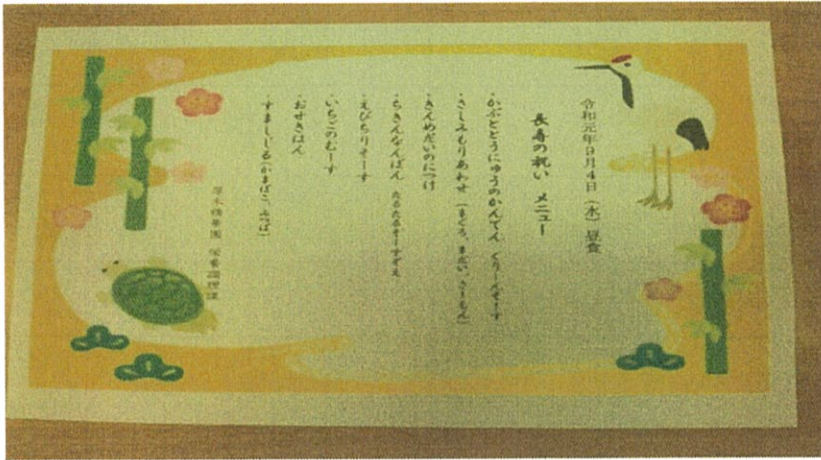 令和元年9月4日（水）昼食
長寿の祝い　メニュー
・かぶとどうにゅうのかんてん　くりーむそーす
・さしみもりあわせ（まぐろ、まだい、さーもん）
・きんめだいのにつけ
・ちきんなんばん　たるたるそーすぞえ
・えびちりそーす
・いちごのむーす
・おせきはん
・すましじる（かまぼこ、みつば）
厚木精華園　栄養調理課